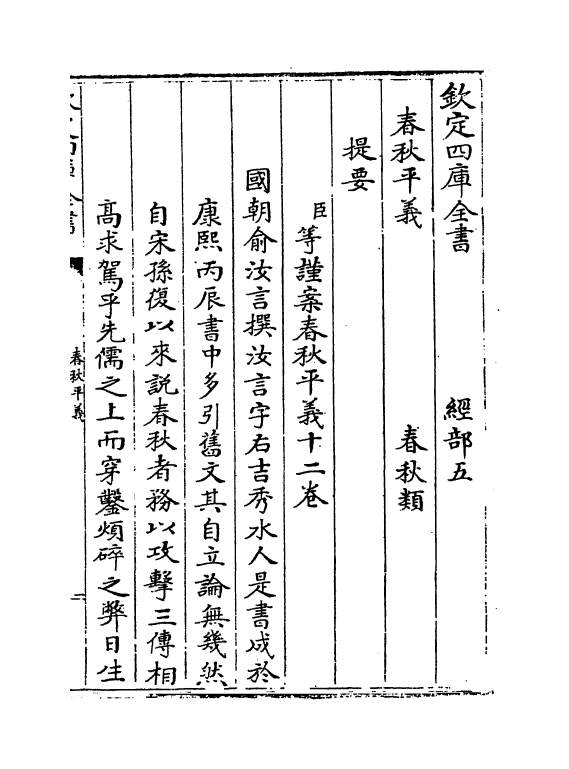 欽定四庫全書　經部五
春秋平義　春秋類
提要
臣等謹案春秋平義十二卷
國朝俞汝言撰汝言字右吉秀水人是書成於
康熙丙辰書中多引舊文其自立論無幾然
自宋孫復以來説春秋者務以攻擊三傳相
髙求駕乎先儒之上而穿鑿煩碎之弊日生
春秋平義